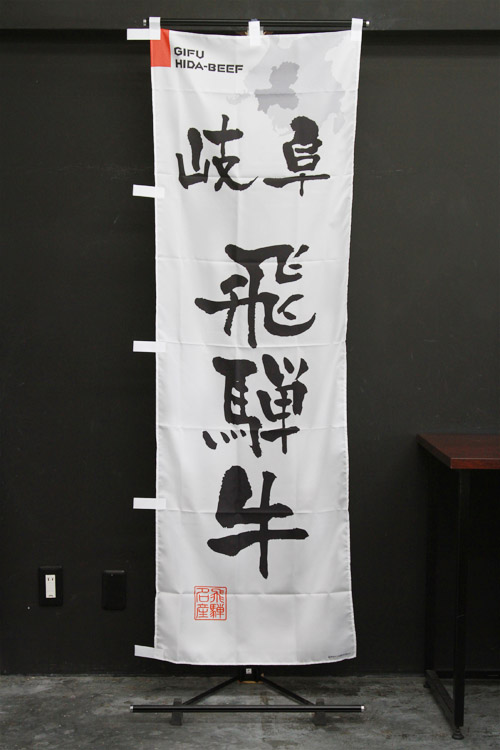 GIFU
HIDA-BEEF
岐阜
飛騨牛
飛騨
名産